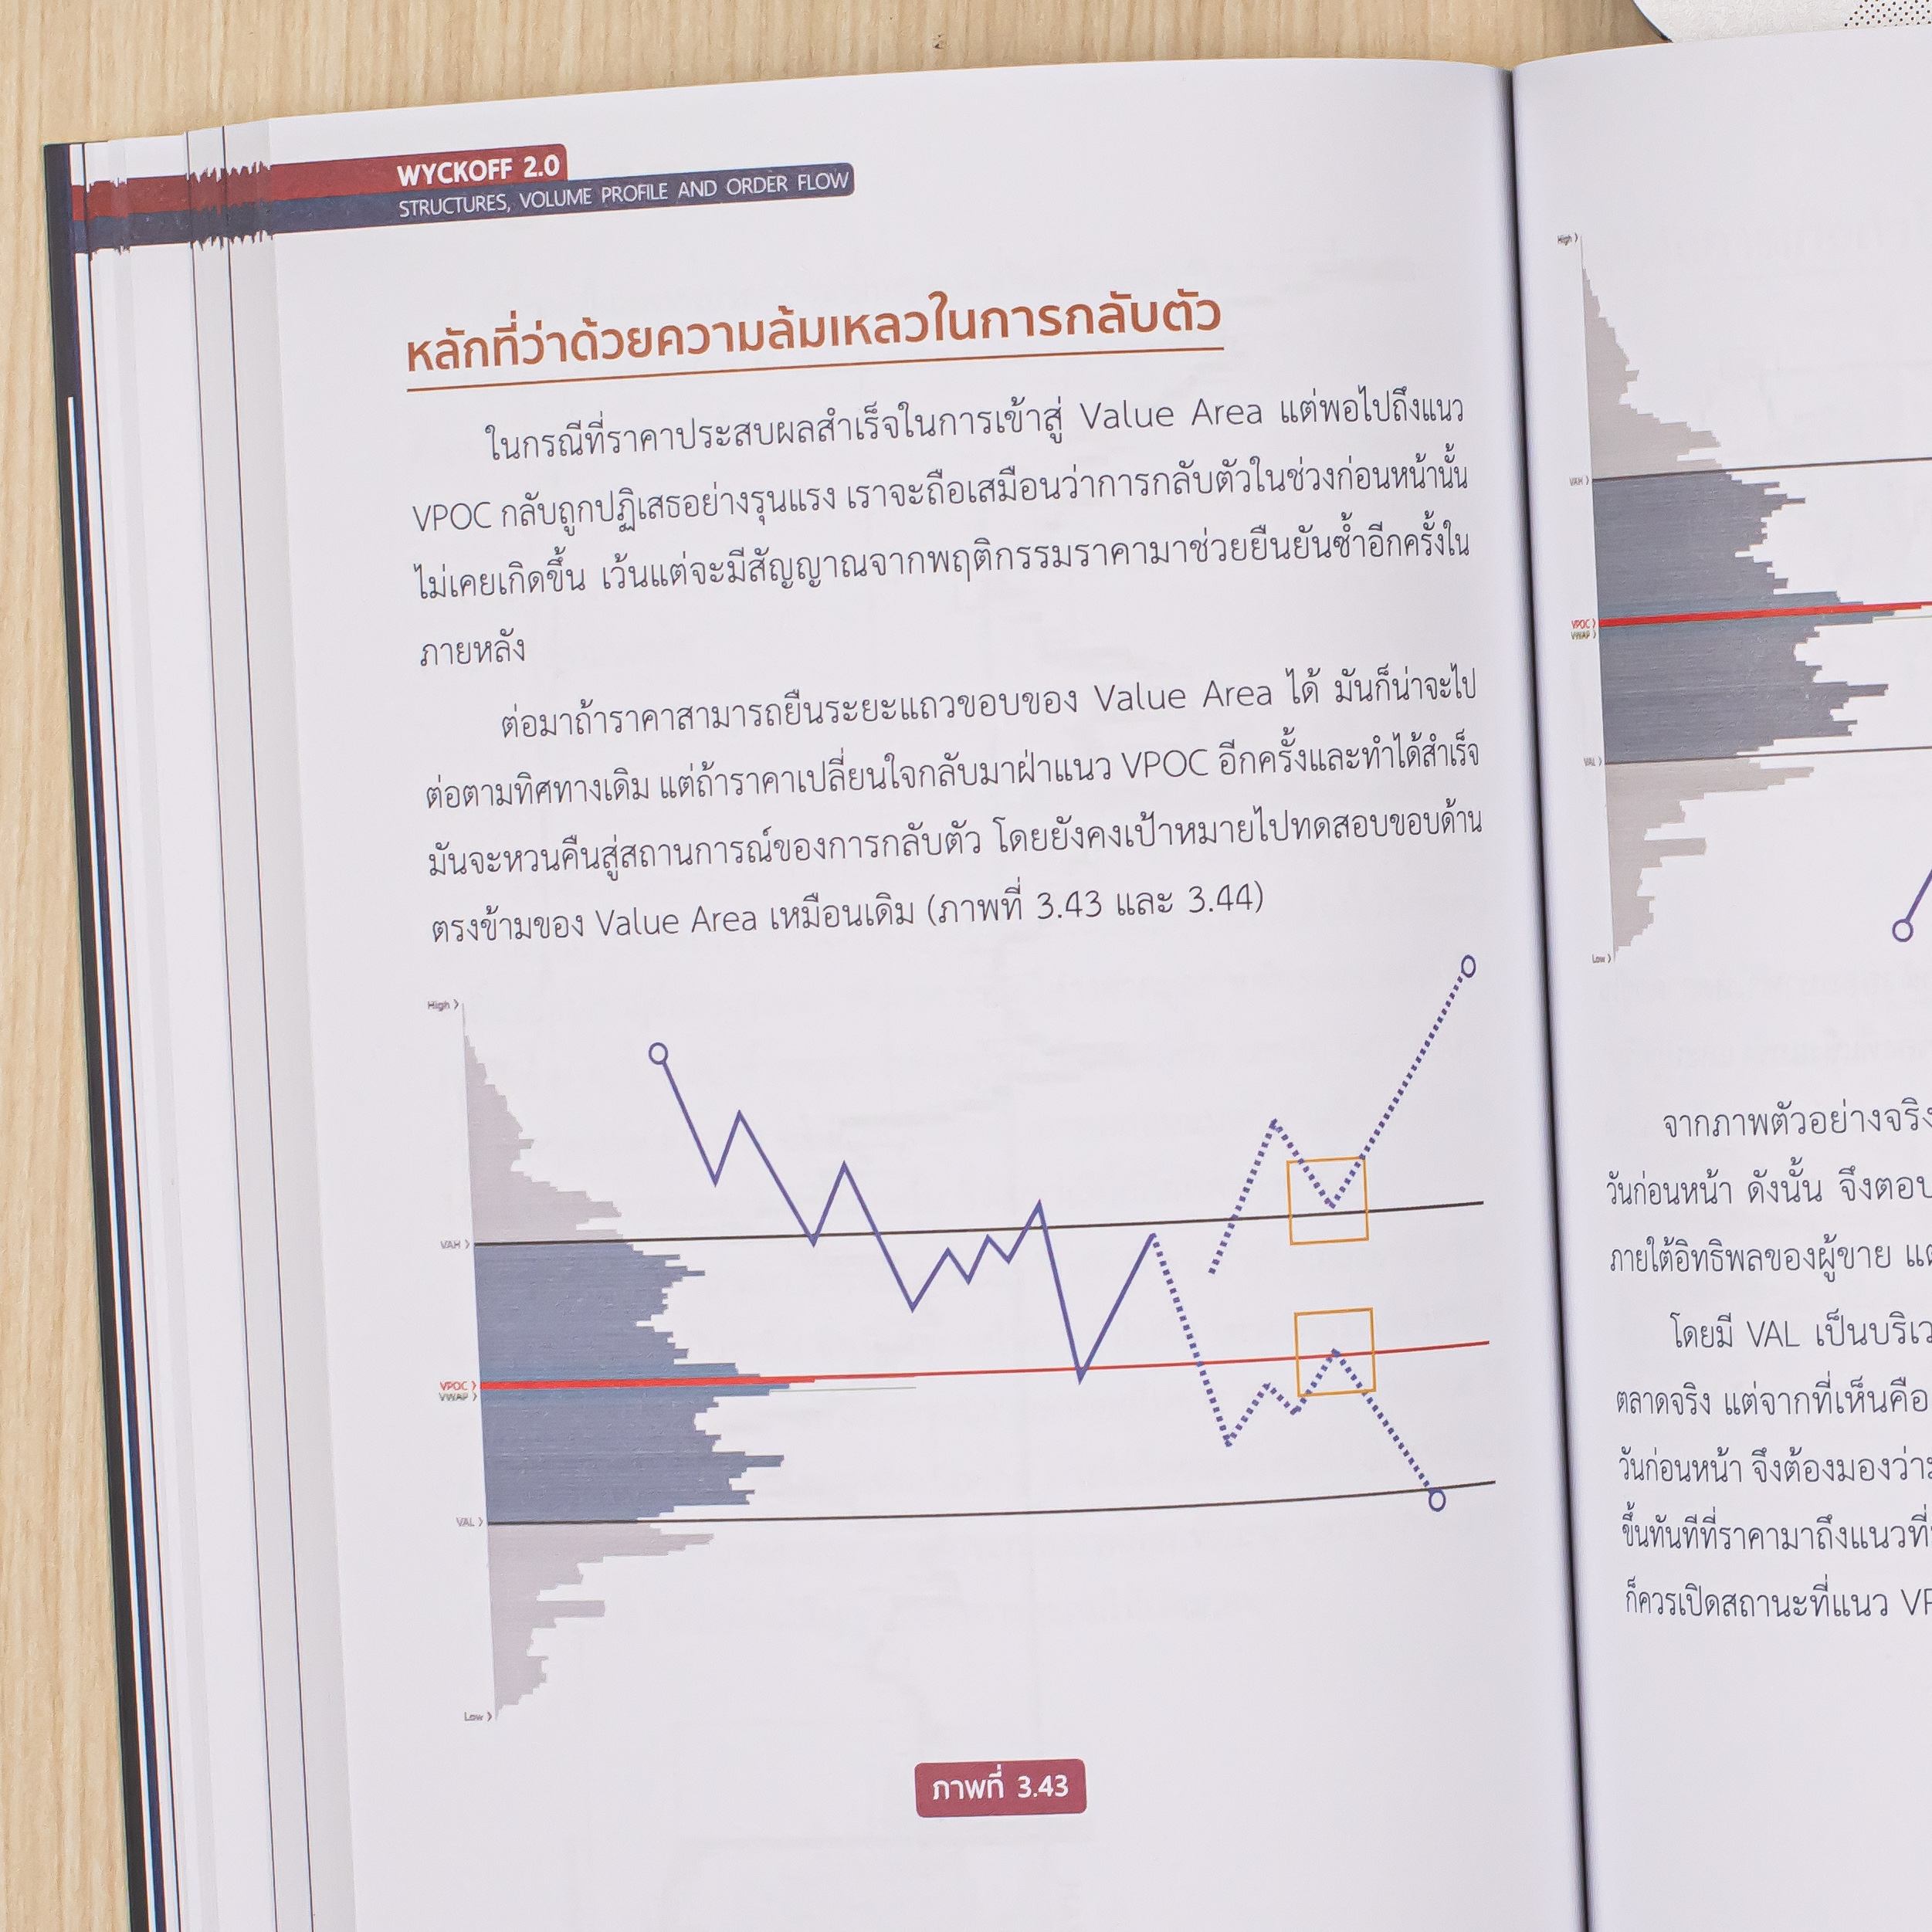 WYCKOFF 2.0
STRUCTURES, VOLUME PROFILE AND ORDER FLOW
หลักที่ว่าด้วยความล้มเหลวในการกลับตัว
ในกรณีที่ราคาประสบผลสำเร็จในการเข้าสู่ Value Area แต่พอไปถึงแนว
VPOC กลับถูกปฏิเสธอย่างรุนแรง เราจะถือเสมือนว่าการกลับตัวในช่วงก่อนหน้านั้น
ไม่เคยเกิดขึ้น เว้นแต่จะมีสัญญาณจากพฤติกรรมราคามาช่วยยืนยันซ้ำอีกครั้งใน
ภายหลัง
ต่อมาถ้าราคาสามารถยืนระยะแถวขอบของ Value Area ได้ มันก็น่าจะไป
ต่อตามทิศทางเดิม แต่ถ้าราคาเปลี่ยนใจกลับมาฝ่าแนว VPOC อีกครั้งและทำได้สำเร็จ
มันจะหวนคืนสู่สถานการณ์ของการกลับตัว โดยยังคงเป้าหมายไปทดสอบขอบด้าน
ตรงข้ามของ Value Area เหมือนเดิม (ภาพที่ 3.43 และ 3.44)
High
VAH
VPOC
VWAP
VAL
Low
ภาพที่ 3.43
High
VAH
VPOC
VWAP
VAL
Low
จากภาพตัวอย่างจริง
วันก่อนหน้า ดังนั้น จึงตอบ
ภายใต้อิทธิพลของผู้ขาย
โดยมี VAL เป็นบริเว
ตลาดจริง แต่จากที่เห็นคือ
วันก่อนหน้า จึงต้องมองว่า
ขึ้นทันทีที่ราคามาถึงแนวที่
ก็ควรเปิดสถานะที่แนว